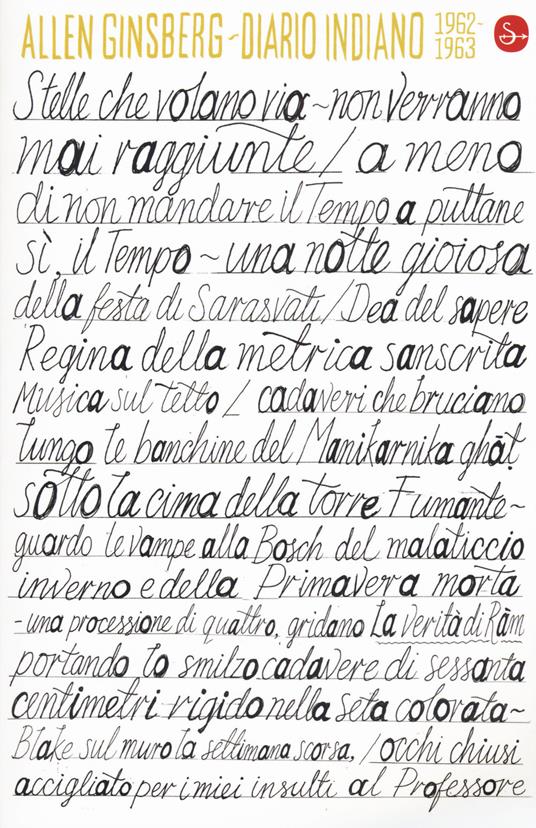 ALLEN GINSBERG ~ DIARIO INDIANO 1962~1963
Stelle che volano via ~ non verranno
mai raggiunte / a meno
di non mandare il Tempo a puttane
sì, il Tempo ~ una notte gioiosa
della festa di Sarasvati / Dea del sapere
Regina della metrica sanscrita
Musica sul tetto / cadaveri che bruciano
lungo le banchine del Manikarnika ghāṭ
sotto la cima della torre Fumante ~
guardo le vampe alla Bosch del malaticcio
inverno e della Primavera morta
- una processione di quattro, gridano La Verità di Rām
portando lo smilzo cadavere di sessanta
centimetri rigido nella seta colorata ~
Blake sul muro la settimana scorsa, / occhi chiusi
accigliato per i miei insulti al Professore